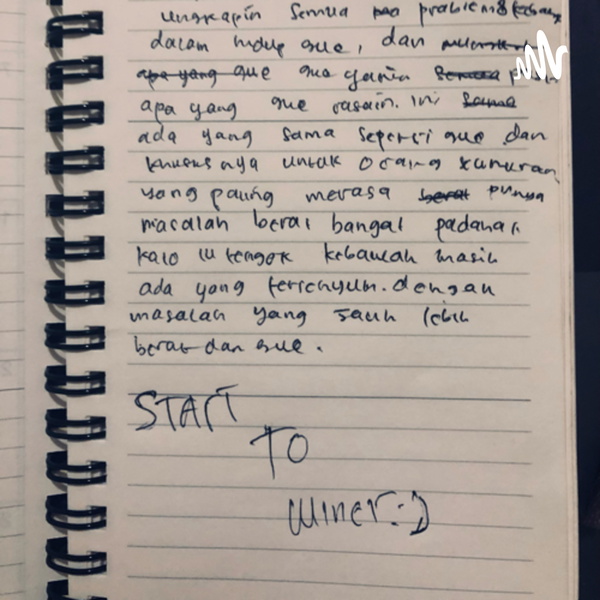 ungkapin semua problem
dalam hidup gue, dan
apa yang gue gue yakin semua
apa yang gue rasain. ini sama
ada yang sama seperti gue dan
khususnya untuk orang
yang paling merasa berat punya
masalah berat bangat padahal
kalo lu tengok kebawah masih
ada yang tersenyum. dengan
masalah yang jauh lebih
berat dari gue.
START
TO
winer:)